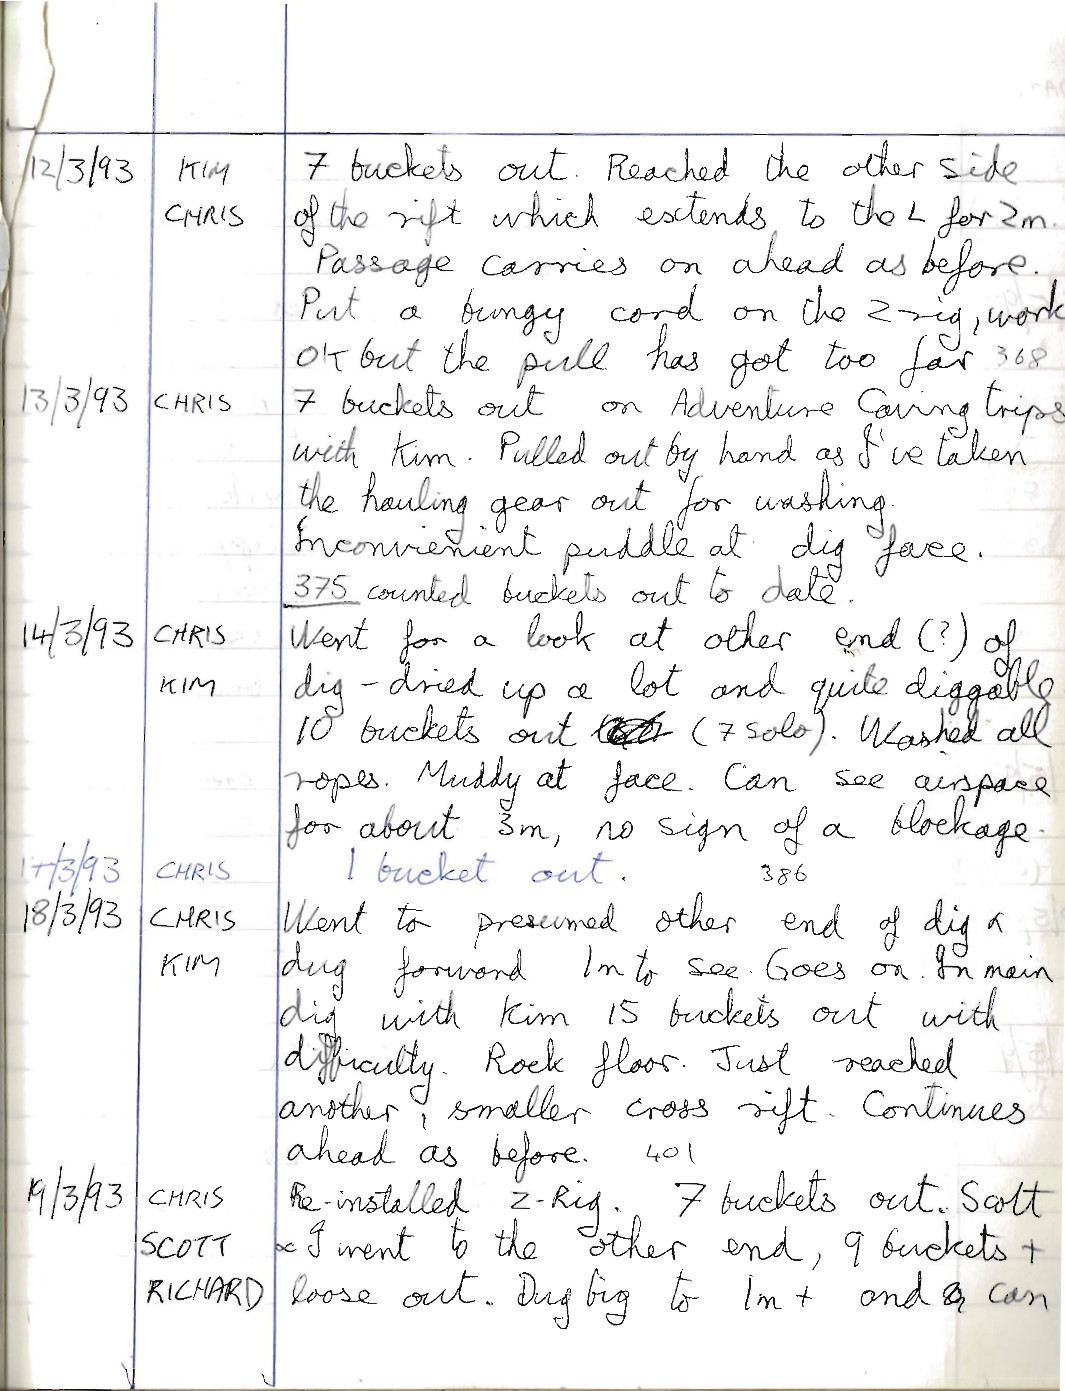 12/3/93 KIM 7 buckets out. Reached the other side
CHRIS of the rift which extends to the L for 2m.
Passage carries on ahead as before.
Put a bungy cord on the Z rig, work
OK but the pull has got too far 368
13/3/93 CHRIS 7 buckets out on Adventure Caving trips
with Kim. Pulled out by hand as I've taken
the hauling gear out for washing.
Inconvienient puddle at dig face.
375 counted buckets out to date.
14/3/93 CHRIS Went for a look at other end (?) of
KIM dig - dried up a lot and quite diggable
10 buckets out (7 solo). Washed all
ropes. Muddy at face. Can see airspace
for about 3m, no sign of a blockage.
17/3/93 CHRIS 1 bucket out. 386
18/3/93 CHRIS Went to presumed other end of dig &
KIM dug forward 1m to see. Goes on. In main
dig with Kim 15 buckets out with
difficulty. Rock floor. Just reached
another, smaller cross rift. Continues
ahead as before. 401
19/3/93 CHRIS Re-installed Z-Rig. 7 buckets out. Scott
SCOTT & I went to the other end, 9 buckets +
RICHARD loose out. Dug big to 1m + and can